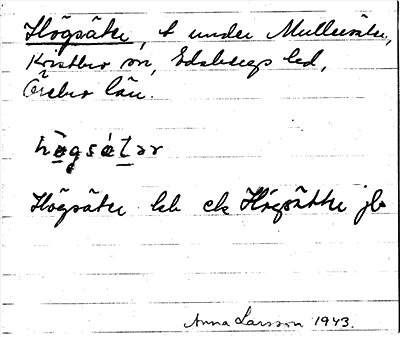 Högsäter, t under Mullersäter,
Kristbro sn, Edsbergs hd,
Örebro län.
hø̀gsǽtər
Högsäter kb ek Högsätter jb
Anna Larsson 1943.